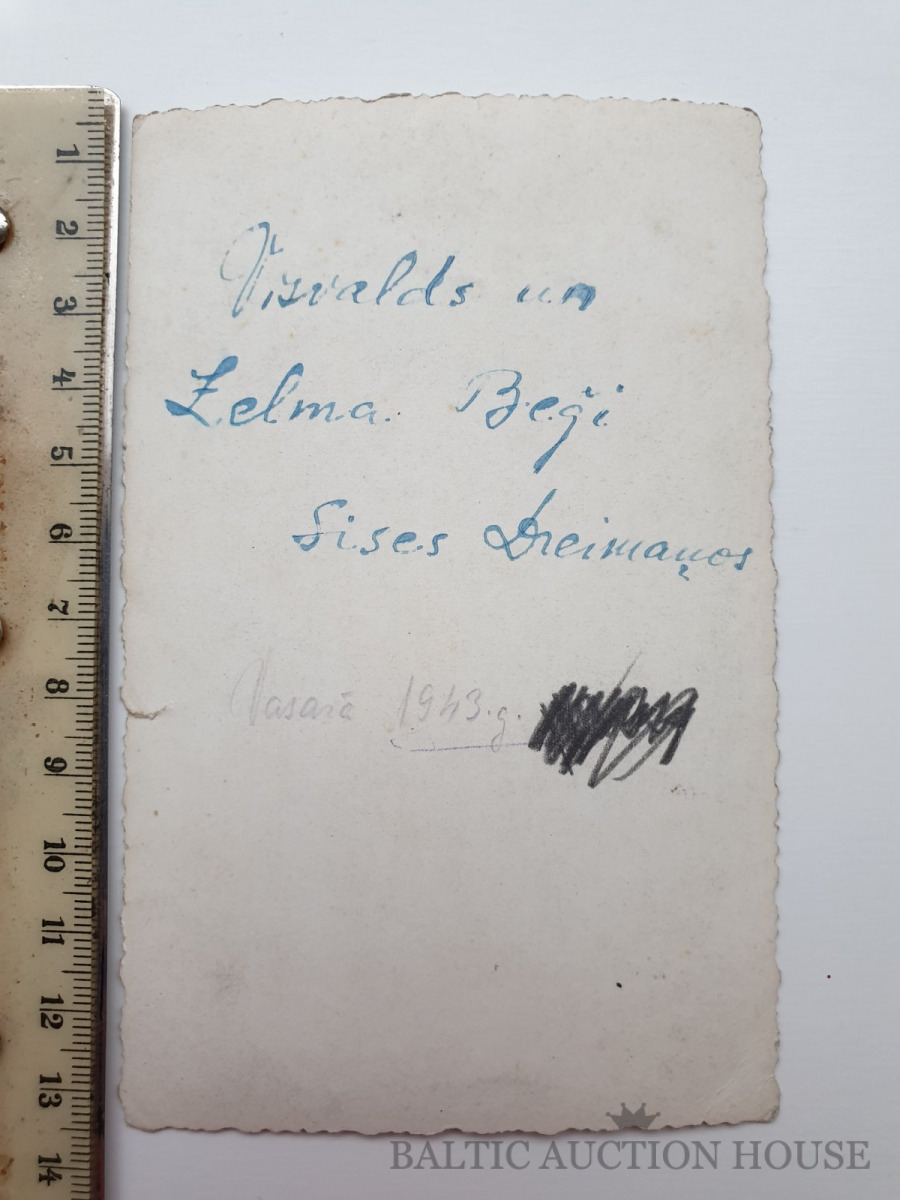 Visvalds un
Zelma Beģi
Sises Dreimaņos
Vasarā 1943.g.
1
2
3
4
5
6
7
8
9
10
11
12
13
14
BALTIC AUCTION HOUSE